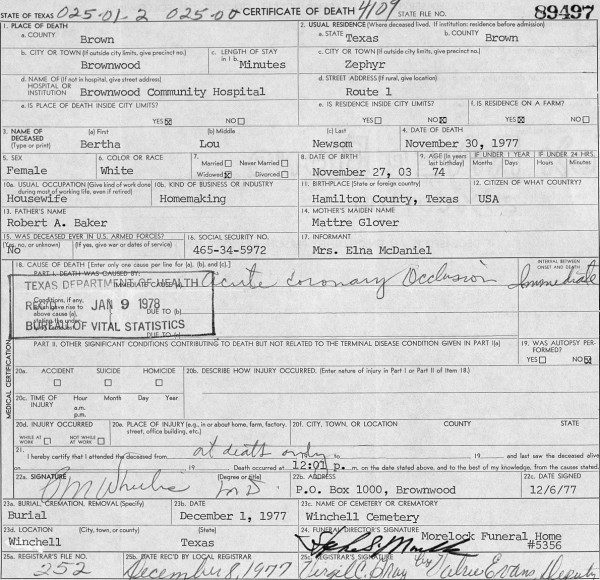 STATE OF TEXAS 025-01-2 025-00 CERTIFICATE OF DEATH 4109 STATE FILE NO. 89497
1. PLACE OF DEATH 2. USUAL RESIDENCE (Where deceased lived. If institution: residence before admission)
a. COUNTY Brown a. STATE Texas b. COUNTY Brown
b. CITY OR TOWN (If outside city limits, give precinct no.) Brownwood c. LENGTH OF STAY in 1 b. Minutes c. CITY OR TOWN (If outside city limits, give precinct no.) Zephyr
d. NAME OF (If not in hospital, give street address) HOSPITAL OR INSTITUTION Brownwood Community Hospital d. STREET ADDRESS (If rural, give location) Route 1
e. IS PLACE OF DEATH INSIDE CITY LIMITS? e. IS RESIDENCE INSIDE CITY LIMITS? f. IS RESIDENCE ON A FARM?
YES☒ NO☐ YES☐ NO☒ YES☒ NO☐
3. NAME OF DECEASED (Type or print) (a) First Bertha (b) Middle Lou (c) Last Newsom 4. DATE OF DEATH November 30, 1977
5. SEX Female 6. COLOR OR RACE White 7. Married ☐ Never Married ☐ Widowed ☒ Divorced ☐ 8. DATE OF BIRTH November 27, 03 9. AGE (In years last birthday) 74 IF UNDER 1 YEAR Months Days IF UNDER 24 HRS. Hours Minutes
10a. USUAL OCCUPATION (Give kind of work done during most of working life, even if retired) Housewife 10b. KIND OF BUSINESS OR INDUSTRY Homemaking 11. BIRTHPLACE (State or foreign country) Hamilton County, Texas 12. CITIZEN OF WHAT COUNTRY? USA
13. FATHER'S NAME Robert A. Baker 14. MOTHER'S MAIDEN NAME Mattre Glover
15. WAS DECEASED EVER IN U.S. ARMED FORCES? (Yes, no, or unknown) (If yes, give war or dates of service) No 16. SOCIAL SECURITY NO. 465-34-5972 17. INFORMANT Mrs. Elna McDaniel
18. CAUSE OF DEATH [Enter only one cause per line for (a), (b), and (c).] INTERVAL BETWEEN ONSET AND DEATH
PART I. DEATH WAS CAUSED BY:
IMMEDIATE CAUSE (a) Acute Coronary Occlusion Immediate
TEXAS DEPARTMENT OF HEALTH
Conditions, if any, which gave rise to above cause (a), stating the under- DUE TO (b)
REC'D JAN 9 1978
BUREAU OF VITAL STATISTICS
DUE TO (c)
MEDICAL CERTIFICATION
PART II. OTHER SIGNIFICANT CONDITIONS CONTRIBUTING TO DEATH BUT NOT RELATED TO THE TERMINAL DISEASE CONDITION GIVEN IN PART I(a) 19. WAS AUTOPSY PERFORMED?
YES☐ NO☒
20a. ACCIDENT ☐ SUICIDE ☐ HOMICIDE ☐ 20b. DESCRIBE HOW INJURY OCCURRED. (Enter nature of injury in Part I or Part II of Item 18.)
20c. TIME OF INJURY Hour a.m. p.m. Month Day Year
20d. INJURY OCCURRED WHILE AT WORK ☐ NOT WHILE AT WORK ☐ 20e. PLACE OF INJURY (e.g., in or about home, farm, factory, street, office building, etc.) 20f. CITY, TOWN, OR LOCATION COUNTY STATE
21. I hereby certify that I attended the deceased from at death only to 19 and last saw the deceased alive
on 19 Death occurred at 12:01 p. m. on the date stated above, and to the best of my knowledge, from the causes stated.
22a. SIGNATURE (Degree or title) M D. 22b. ADDRESS P.O. Box 1000, Brownwood 22c. DATE SIGNED 12/6/77
23a. BURIAL, CREMATION, REMOVAL (Specify) Burial 23b. DATE December 1, 1977 23c. NAME OF CEMETERY OR CREMATORY Winchell Cemetery
23d. LOCATION (City, town, or county) Winchell (State) Texas 24. FUNERAL DIRECTOR'S SIGNATURE Morelock Funeral Home #5356
25a. REGISTRAR'S FILE NO. 252 25b. DATE REC'D BY LOCAL REGISTRAR December 8, 1977 25c. REGISTRAR'S SIGNATURE Virge C. Gray by Valrie Evans Deputy